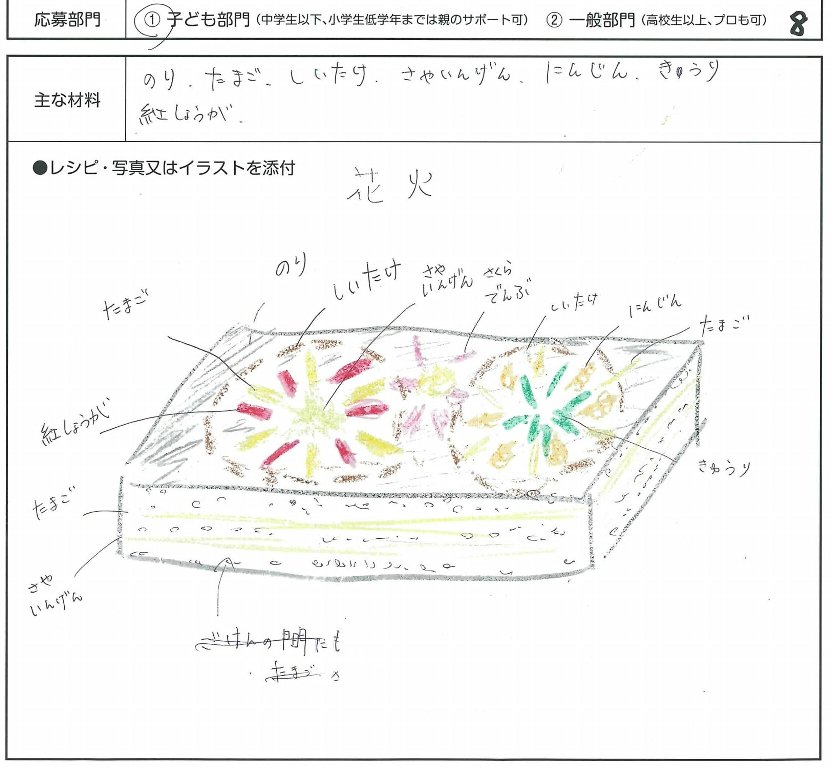 応募部門 ① 子ども部門（中学生以下、小学生低学年までは親のサポート可） ② 一般部門（高校生以上、プロも可） 8
主な材料
のり．たまご．しいたけ．さやいんげん．にんじん．きゅうり
紅しょうが．
●レシピ・写真又はイラストを添付
花火
のり
しいたけ
さや
いんげん
さくら
でんぶ
しいたけ
にんじん
たまご
たまご
紅しょうが
きゅうり
たまご
さや
いんげん
ごはんの間にも
たまご